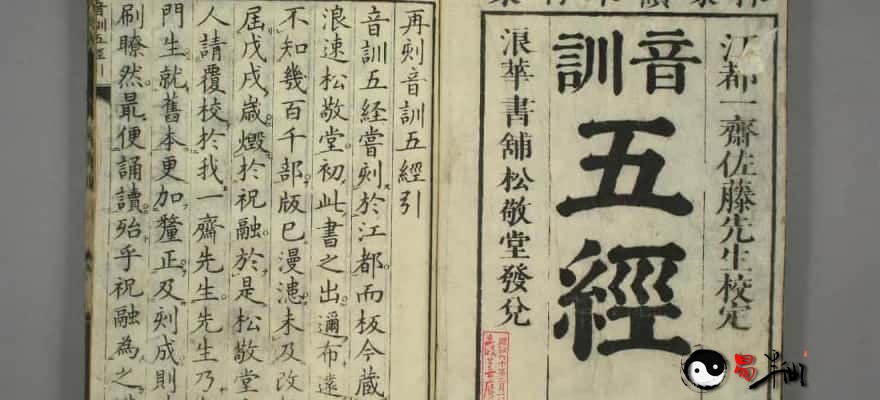 江都一齋佐藤先生校定
音訓
五經
浪華書舖松敬堂發兌
再刻音訓五經引
音訓五経嘗刻於江都而板今藏
浪速松敬堂初此書之出邇布遠
不知幾百千部版已漫漶未及改
屆戊戌歳燬於祝融於是松敬堂
人請覆校於我一齋先生先生乃
門生就舊本更加釐正及刻成則
刷瞭然最便誦讀殆乎祝融為之
音訓五經
易半仙